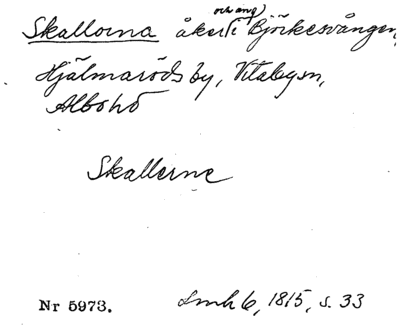 och äng)
Skallorna åker i Björkesvången,
Hjälmaröds by, Vitaby sn,
Albo hd
Skallerne
Nr 5973.
Lmh 6, 1815, s. 33